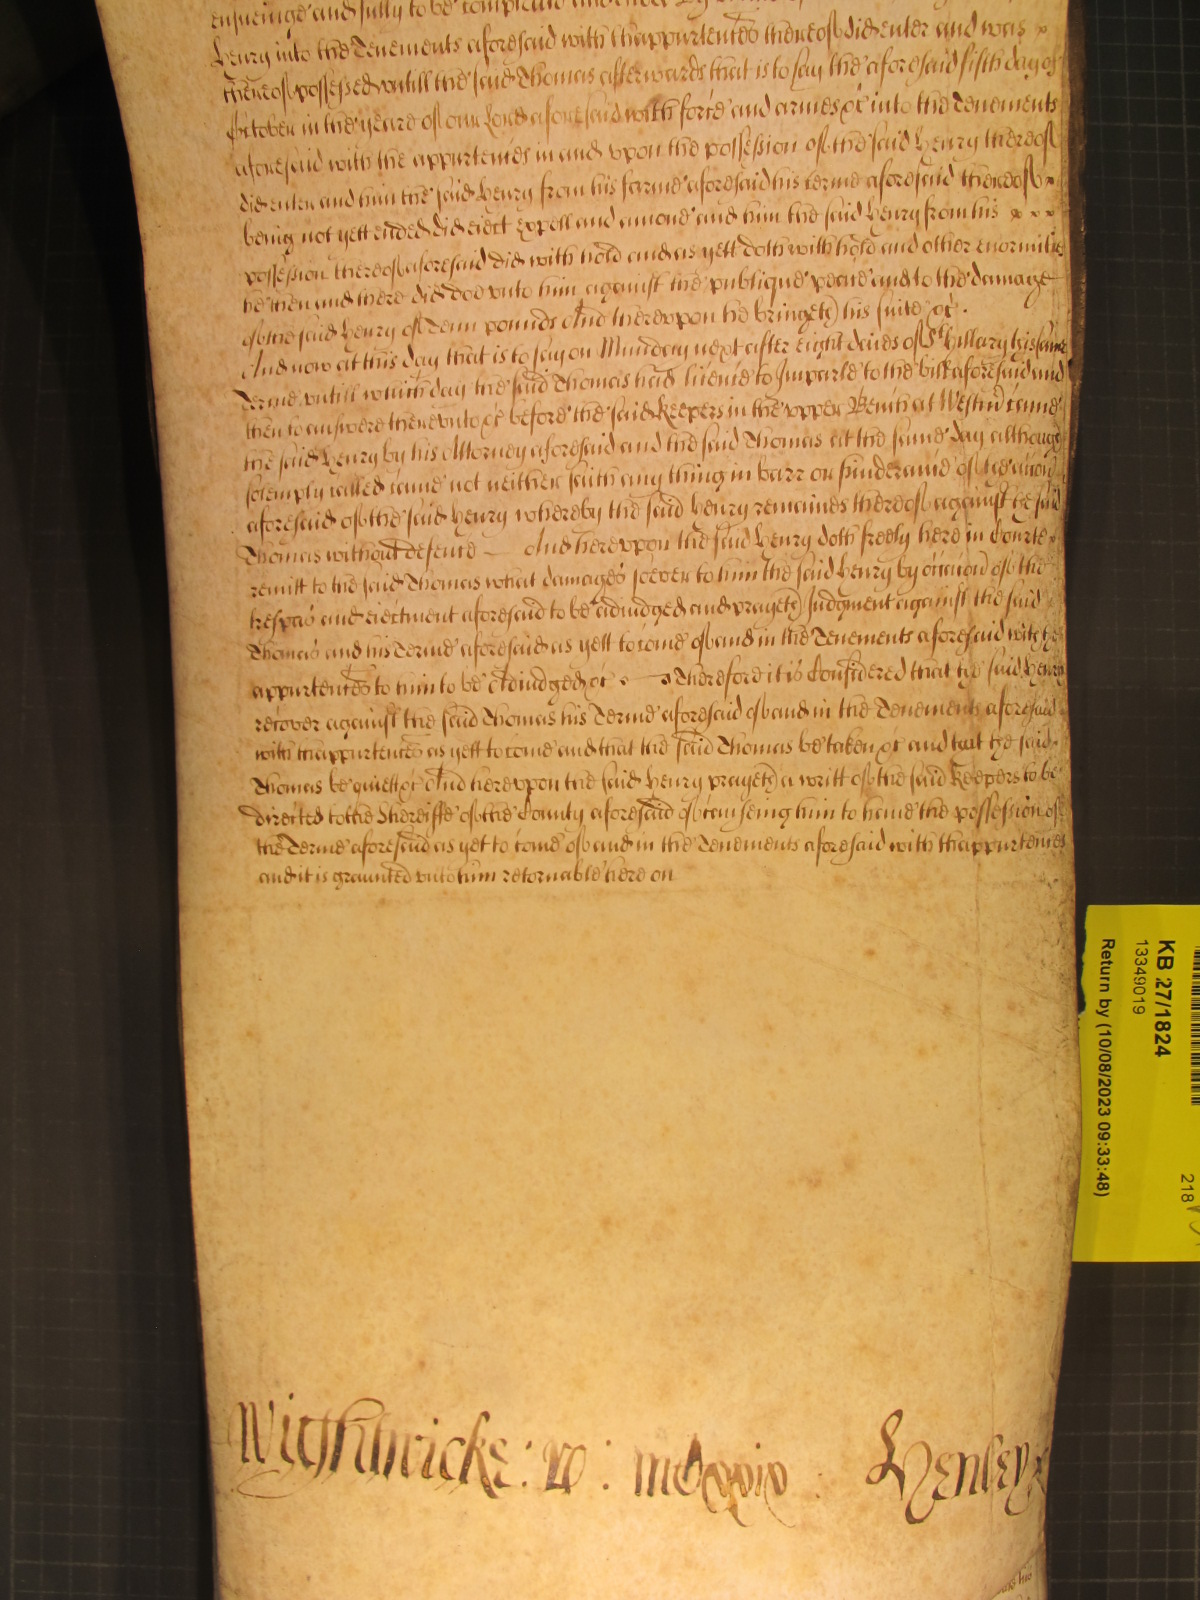 ensueinge and fully to be compleate and ended By
Henry into the Tenements aforesaid with thappurtenñces thereof did enter and was x
thereof possessed vntill the said Thomas afterwards that is to say the aforesaid fifth day of
October in the yeare of our Lord aforesaid with force and armes &c into the Tenements
aforesaid with the appurtenñces in and vpon the possession of the said Henry thereof
did enter and him the said Henry from his farme aforesaid his terme aforesaid thereof x
being not yett ended did eiect expell and amoue and him the said Henry from his x x x
possession thereof aforesaid did with hold and as yett doth with hold and other enormities
he then and there did doe vnto him against the publique peace and to the damage
of the said Henry of Tenn pounds And therevpon he bringeth his suite &c .
And now at this day that is to say on Munday next after eight daies of St Hillary this same
Terme vntill which day the said Thomas had licence to Imparle to the bill aforesaid and
then to answere therevnto &c before the said Keepers in the vpper Bench at Westm̃ came
the said Henry by his Attorney aforesaid and the said Thomas at the same day although
solemply called came not neither saith any thing in barr or hinderance of the accon
aforesaid of the said Henry whereby the said Henry remaines thereof against the said
Thomas without defence — And herevpon the said Henry doth freely here in Courte x
remitt to the said Thomas what damages soever to him the said Henry by occacon of the
trespas and eiectment aforesaid to be adiudged and prayeth Judgment against the said
Thomas and his Terme aforesaid as yett to come of and in the Tenements aforesaid with the
appurtenñces to him to be Adiudged &c . Therefore it is Considered that the said Henry
recover against the said Thomas his Terme aforesaid of and in the Tenements aforesaid
with thappurtenñces as yett to come and that the said Thomas be taken &c and that the said
Thomas be quiett &c And herevpon the said Henry prayeth a writt of the said Keepers to be
directed to the Shereiffe of the County aforesaid of causeing him to haue the possession of
the Terme aforesaid as yet to come of and in the Tenements aforesaid with thappurtenñces
and it is graunted vnto him retornable here on
Wightwicke : ro : mdxxix . Henley
KB 27/1824
13349019
Return by (10/08/2023 09:33:48)
218